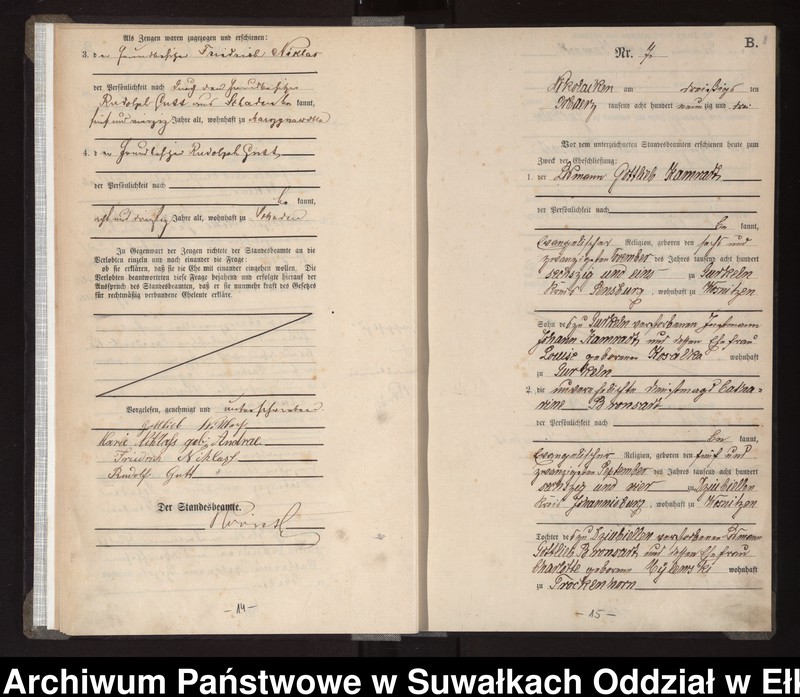 Als Zeugen waren zugezogen und erschienen:
3. der Grundbesitzer Friedrich Niklas
der Persönlichkeit nach durch den Grundbesitzer
Rudolph Gutt aus Schaden be kannt,
fünf und vierzig Jahre alt, wohnhaft zu
4. der Grundbesitzer Rudolph Gutt
der Persönlichkeit nach
be kannt,
acht und dreißig Jahre alt, wohnhaft zu Schaden
In Gegenwart der Zeugen richtete der Standesbeamte an die
Verlobten einzeln und nach einander die Frage:
ob sie erklären, daß sie die Ehe mit einander eingehen wollen. Die
Verlobten beantworteten diese Frage bejahend und erfolgte hierauf der
Ausspruch des Standesbeamten, daß er sie nunmehr kraft des Gesetzes
für rechtmäßig verbundene Eheleute erkläre.
Vorgelesen, genehmigt und unterschrieben
Gottlieb
Marie geb. Andrae
Friedrich Niklas
Rudolf Gutt
Der Standesbeamte.
- 14 -
B.
Nr. 7
Nikolaiken am dreißigs ten
tausend acht hundert neun zig und drei
Vor dem unterzeichneten Standesbeamten erschienen heute zum
Zweck der Eheschließung:
1. der Gottlieb Kamratz
der Persönlichkeit nach
be kannt,
evangelischer Religion, geboren den sechs und
zwanzigsten des Jahres tausend acht hundert
sechszig und eins zu Gurkeln
Kreis Sensburg, wohnhaft zu Wosnitzen
Sohn des zu Gurkeln verstorbenen
Johann Kamratz und dessen Ehefrau
Louise geborenen Kosalka wohnhaft
zu Gurkeln
2. die unverehelichte Dienstmagd Catha-
rine Bronsart
der Persönlichkeit nach
be kannt,
evangelischer Religion, geboren den fünf und
zwanzigsten September des Jahres tausend acht hundert
sechszig und vier zu Dziubiellen
Kreis Johannisburg, wohnhaft zu Wosnitzen
Tochter des zu Dziubiellen verstorbenen
Gottlieb Bronsart und dessen Ehefrau
Charlotte geborene wohnhaft
zu Trockenhorn
- 15 -
Archiwum Państwowe w Suwałkach Oddział w Eł